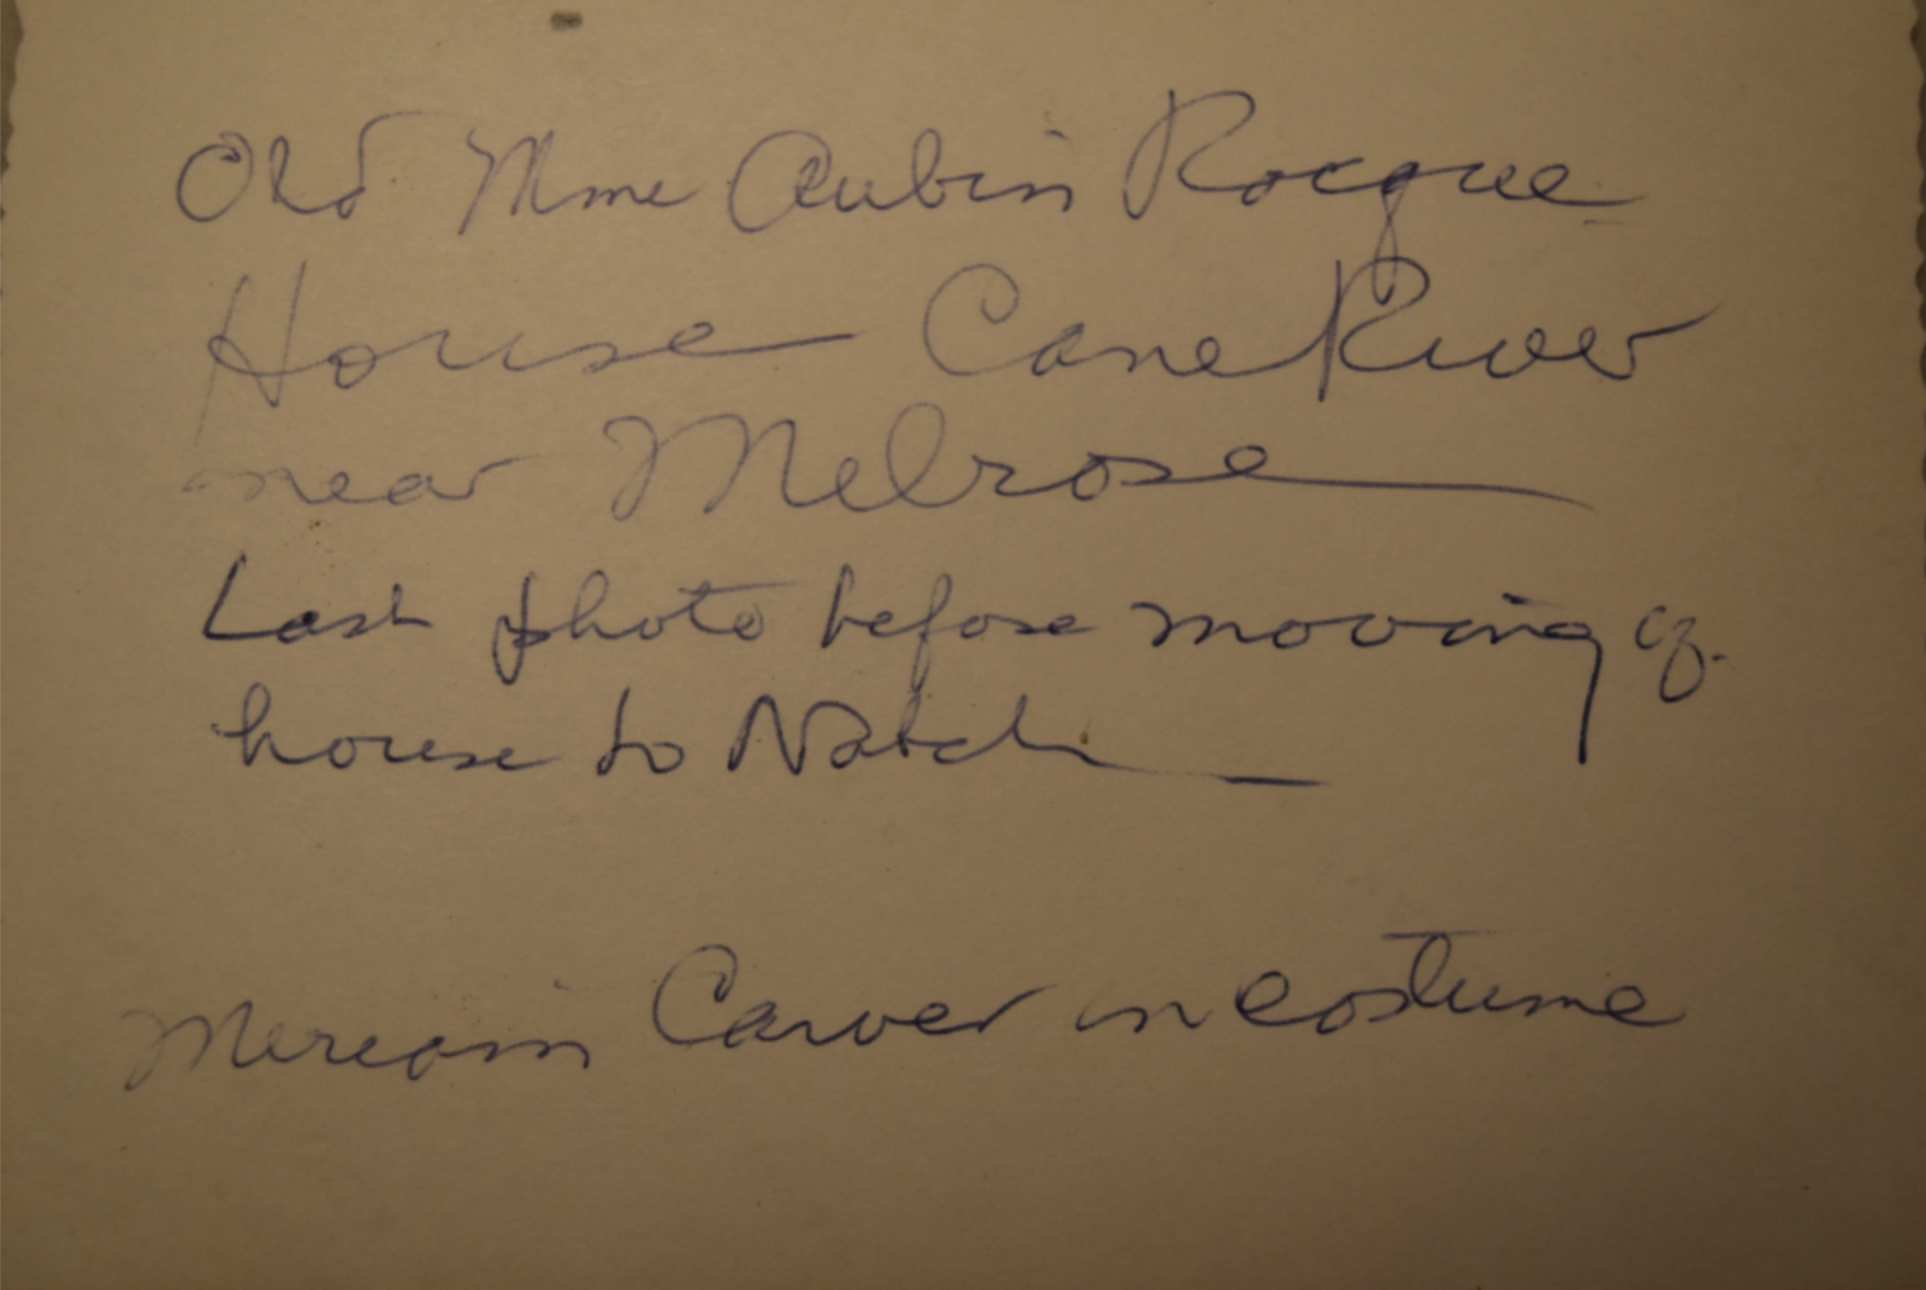 Old Mme Aubin Rocque
House Cane River
near Melrose
Last photo before moving of
house to Natch
Meream Carver in costume